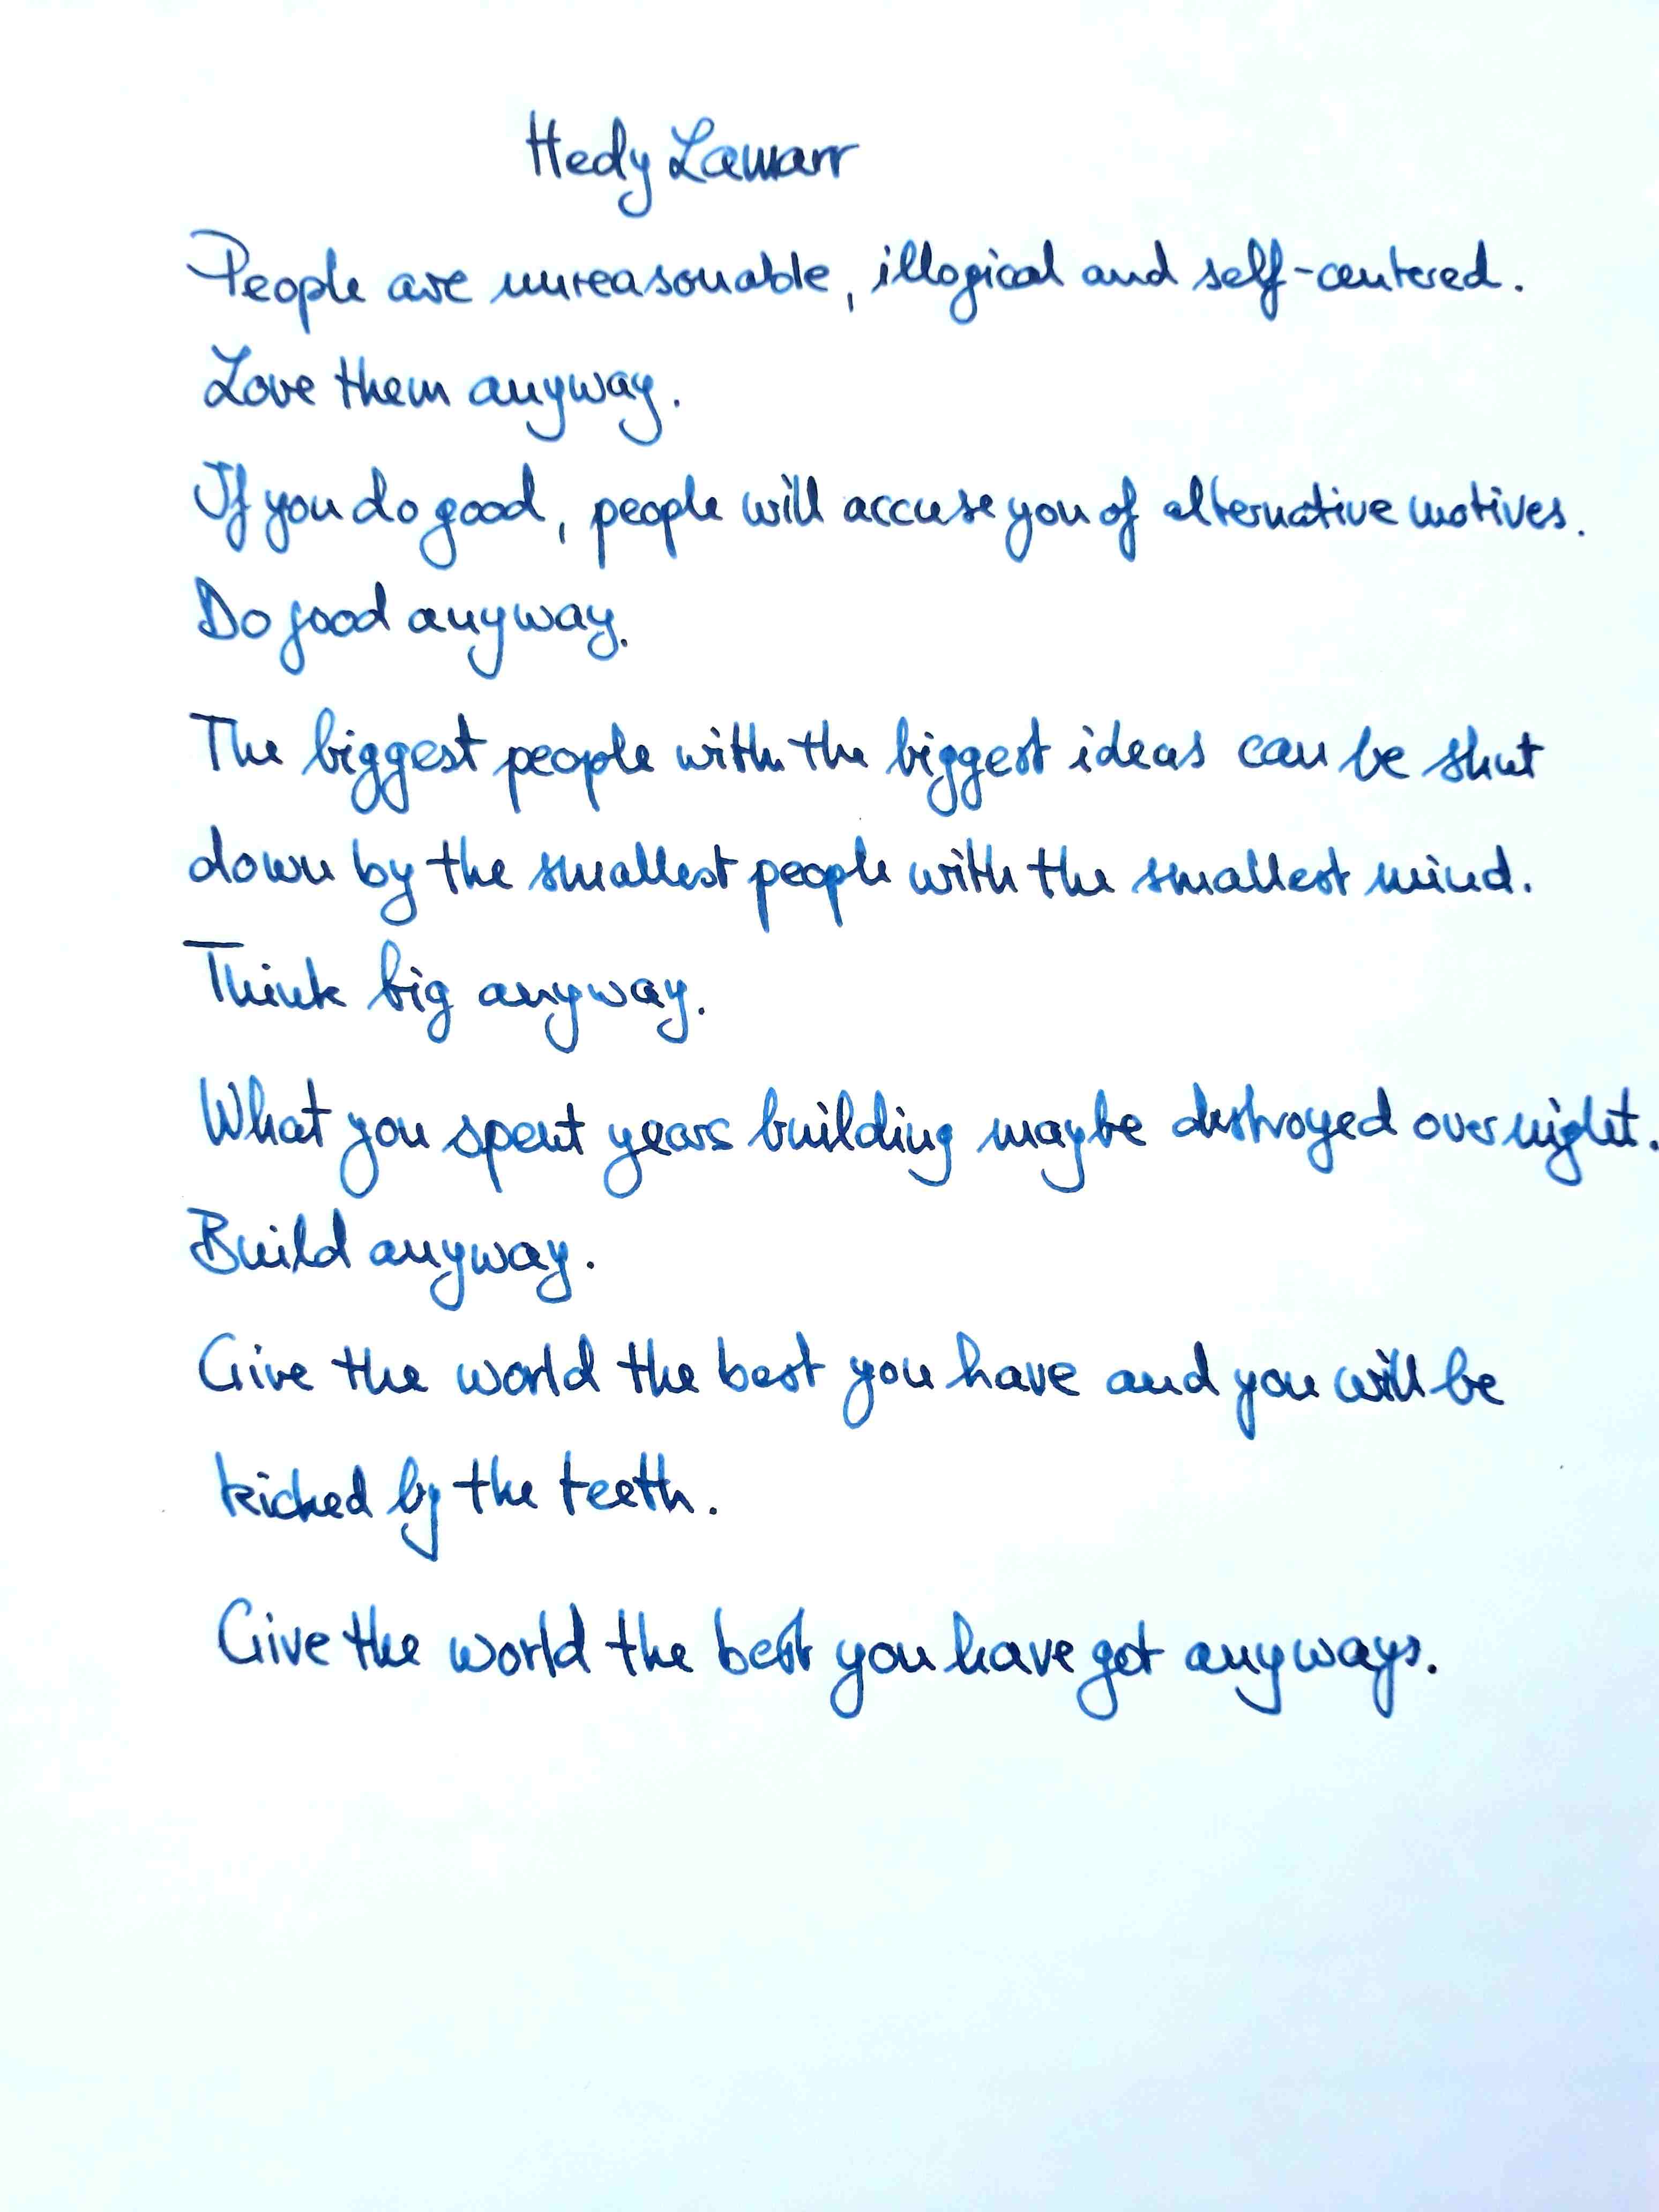 Hedy Lamarr
People are unreasonable, illogical and self-centered.
Love them anyway.
If you do good, people will accuse you of alternative motives.
Do good anyway.
The biggest people with the biggest ideas can be shut
down by the smallest people with the smallest mind.
Think big anyway.
What you spent years building maybe destroyed overnight.
Build anyway.
Give the world the best you have and you will be
kicked by the teeth.
Give the world the best you have got anyways.